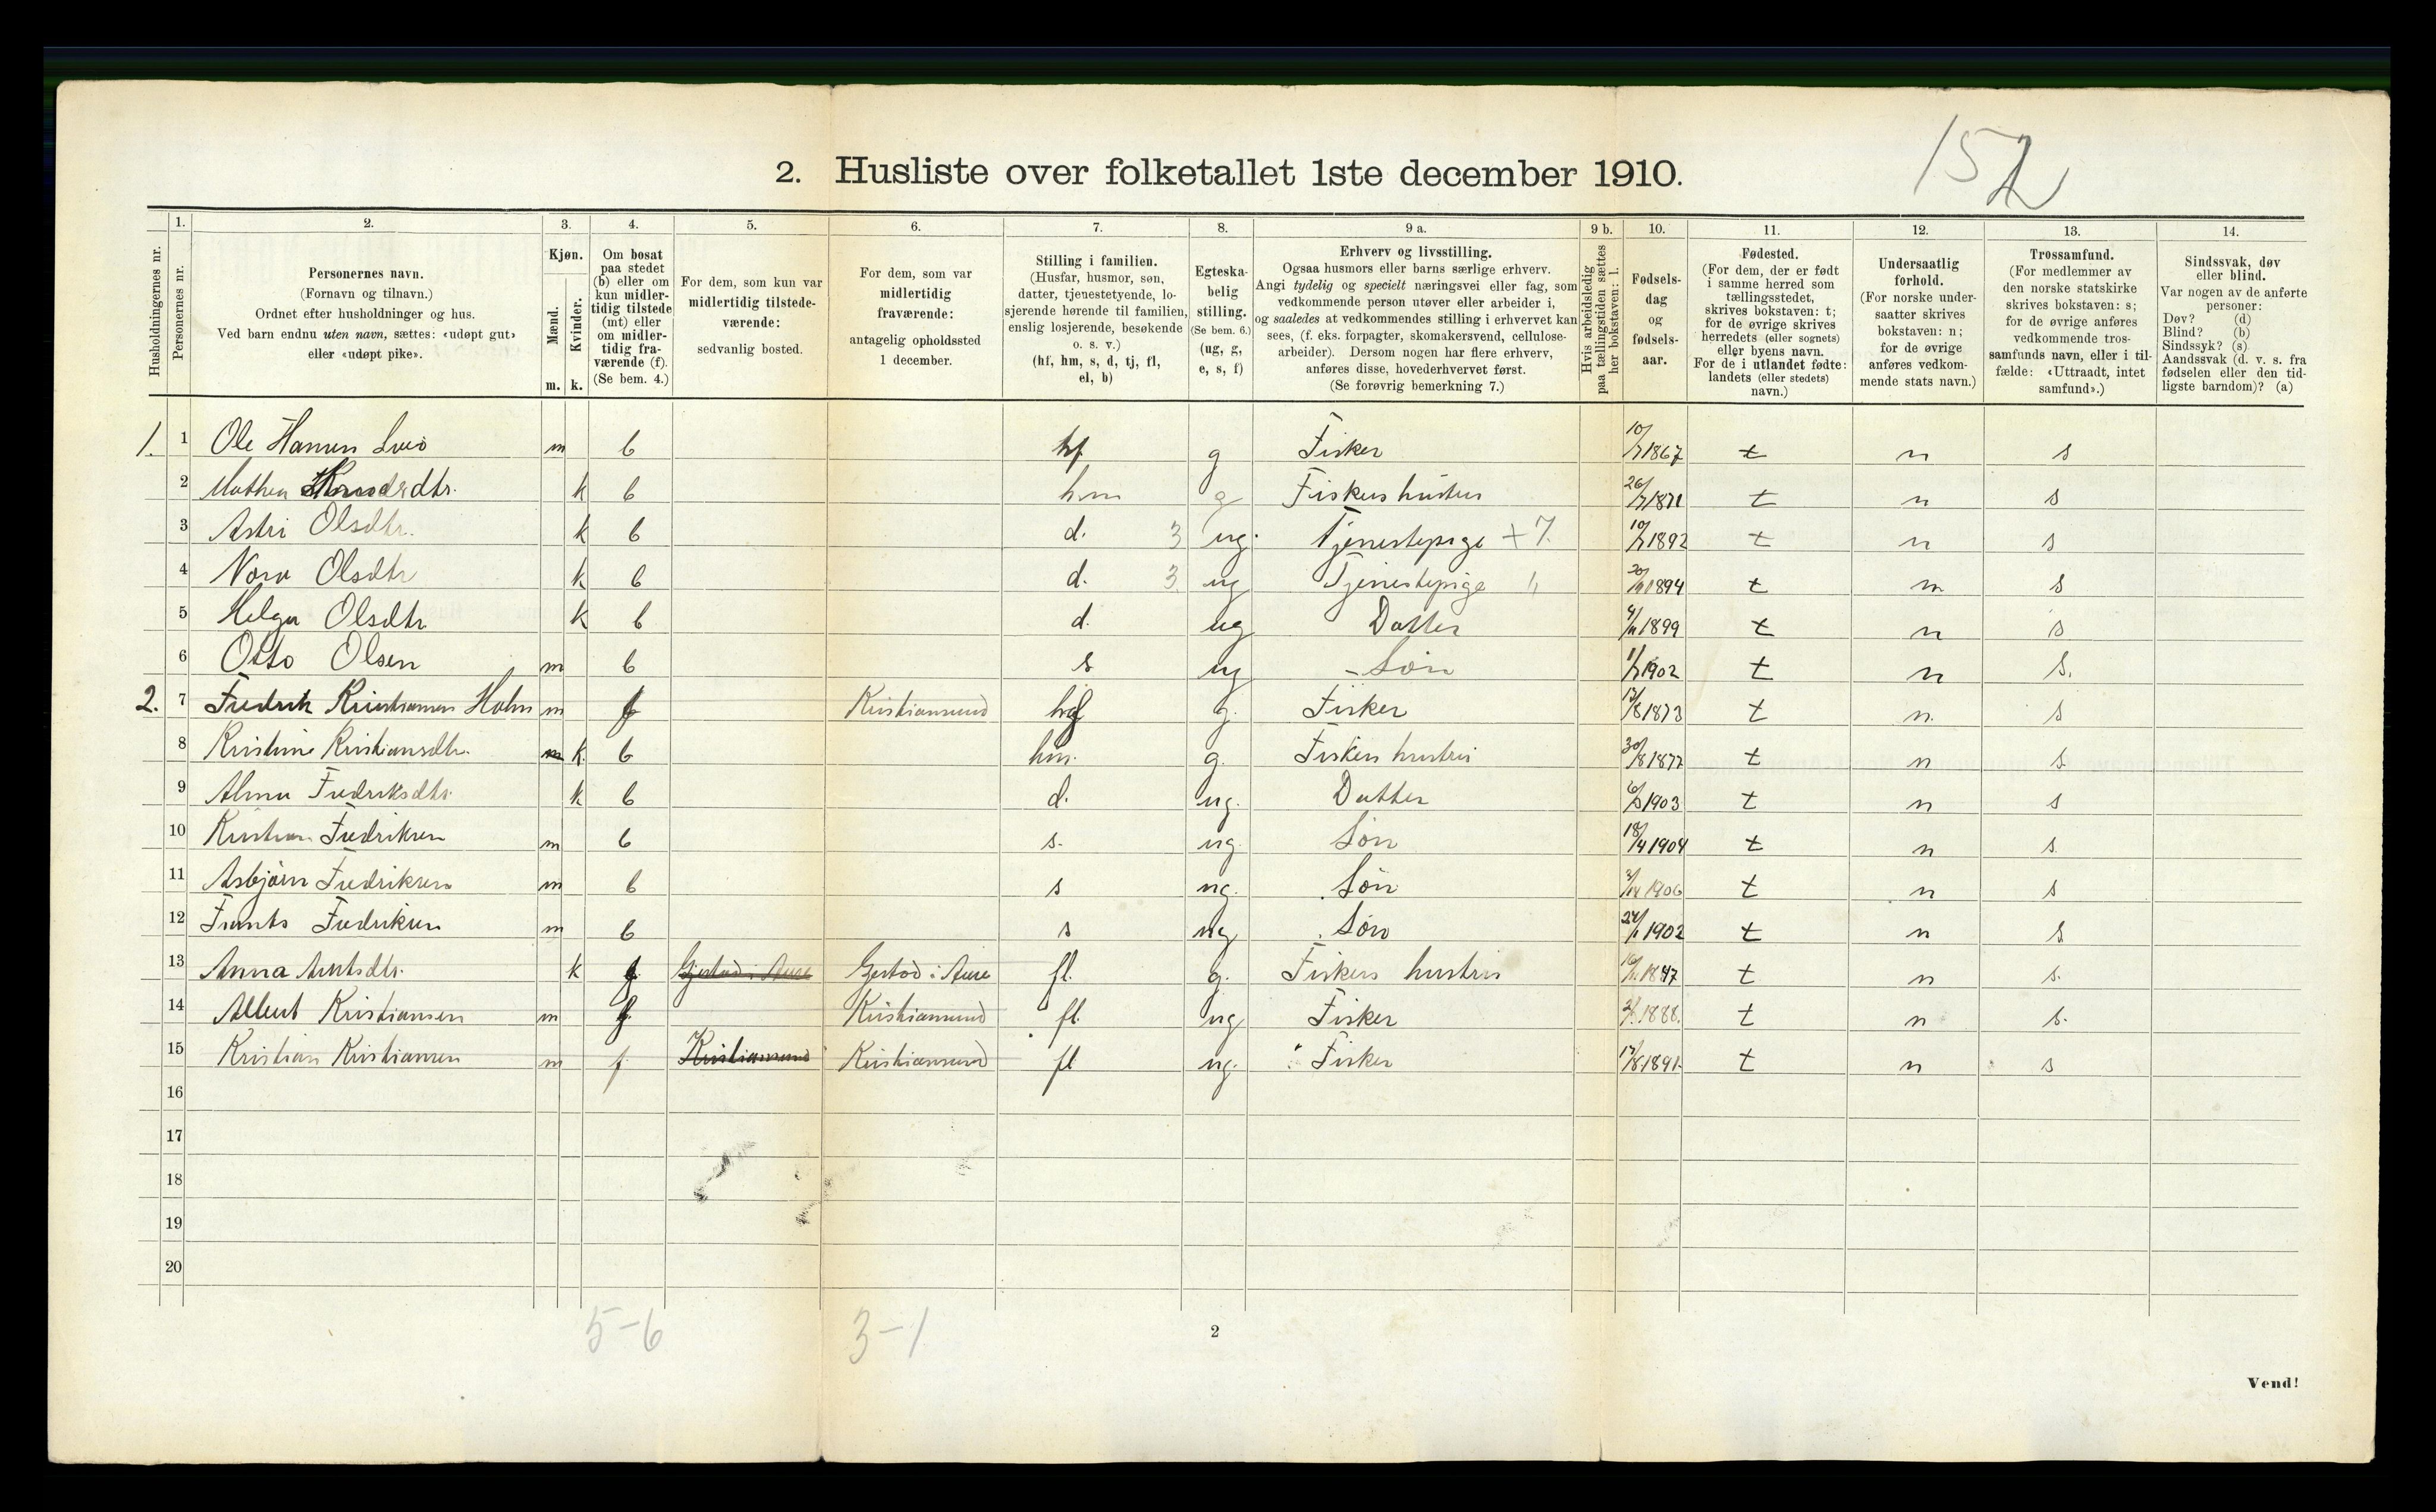 152
2. Husliste over folketallet 1ste december 1910.
Husholdningernes nr.
1. Personernes nr.
2. Personernes navn. (Fornavn og tilnavn.) Ordnet efter husholdninger og hus. Ved barn endnu uten navn, sættes: «udøpt gut» eller «udøpt pike».
3. Kjøn. Mænd. m. Kvinder. k.
4. Om bosat paa stedet (b) eller om kun midlertidig tilstede (mt) eller om midlertidig fraværende (f). (Se bem. 4.)
5. For dem, som kun var midlertidig tilstedeværende: sedvanlig bosted.
6. For dem, som var midlertidig fraværende: antagelig opholdssted 1 december.
7. Stilling i familien. (Husfar, husmor, søn, datter, tjenestetyende, losjerende hørende til familien, enslig losjerende, besøkende o. s. v.) (hf, hm, s, d, tj, fl, el, b)
8. Egteskabelig stilling. (Se bem. 6.) (ug, g, e, s, f)
9 a. Erhverv og livsstilling. Ogsaa husmors eller barns særlige erhverv. Angi tydelig og specielt næringsvei eller fag, som vedkommende person utøver eller arbeider i, og saaledes at vedkommendes stilling i erhvervet kan sees, (f. eks. forpagter, skomakersvend, cellulosearbeider). Dersom nogen har flere erhverv, anføres disse, hovederhvervet først. (Se forøvrig bemerkning 7.)
9 b. Hvis arbeidsledig paa tællingstiden sættes her bokstaven: l.
10. Fødselsdag og fødselsaar.
11. Fødested. (For dem, der er født i samme herred som tællingsstedet, skrives bokstaven: t; for de øvrige skrives herredets (eller sognets) eller byens navn. For de i utlandet fødte: landets (eller stedets) navn.)
12. Undersaatlig forhold. (For norske undersaatter skrives bokstaven: n; for de øvrige anføres vedkommende stats navn.)
13. Trossamfund. (For medlemmer av den norske statskirke skrives bokstaven: s; for de øvrige anføres vedkommende trossamfunds navn, eller i tilfælde: «Uttraadt, intet samfund».)
14. Sindssvak, døv eller blind. Var nogen av de anførte personer: Døv? (d) Blind? (b) Sindssyk? (s) Aandssvak (d. v. s. fra fødselen eller den tidligste barndom)? (a)
1. 1 Ole Hansen m b hf g Fisker 10/7 1867 t n s
2 Mathea k b hm g Fiskers hustru 26/7 1871 t n s
3 Astri Olsdtr. k b d. 3 ug. Tjenestepige + 7. 10/7 1892 t n s
4 Nora Olsdtr k b d. 3. ug Tjenestepige " 1894 t n s
5 Helga Olsdtr k b d. ug Datter 1899 t n s
6 Otto Olsen m b s ug - Søn 1/7 1902 t n s.
2. 7 Fredrik Kristiansen Holm m f Kristiansund hf g. Fisker 13/8 1873 t n. s
8 Kristine Kristiansdtr. k. b hm. g. Fiskers hustru 30/8 1877 t n s.
9 Alma Fredriksdtr. k b d. ug. Datter 1903 t n s
10 Kristian Fredriksen m b s. ug. Søn 18/4 1904 t n s.
11 Asbjørn Fredriksen m b s ug. Søn 1906 t n s
12 Frants Fredriksen m b s ug Søn 24/1 1902 t n s
13 Anna Arntsdtr. k f Gjestad i Aure Gjestad i Aure fl. g. Fiskers hustru 1847 t n s.
14 Albert Kristiansen m f Kristiansund fl. ug Fisker 1888. t n s.
15 Kristian Kristiansen m f. Kristiansund Kristiansund fl ug. Fisker 17/8 1891. t n s
16
17
18
19
20
5-6 3-1
2
Vend!